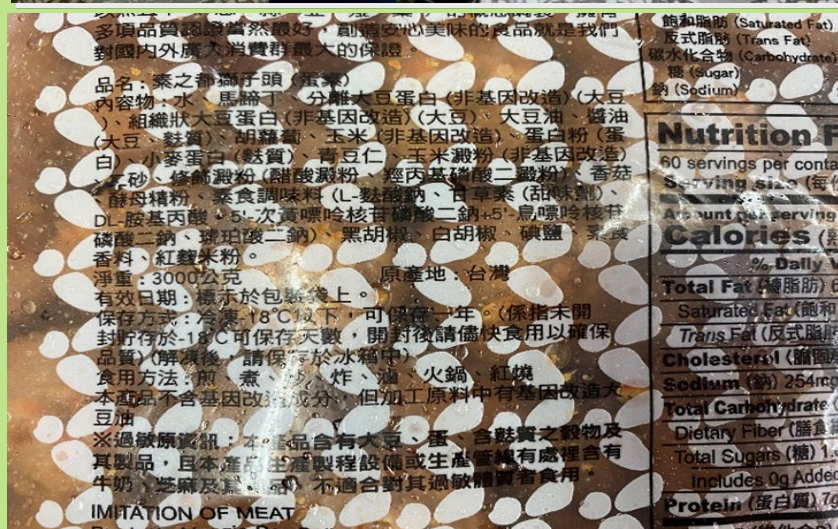 多項品質認證當然最好，創造安心美味的食品就是我們
對國內外廣大消費群最大的保證。
品名：素之都獅子頭（蛋素）
內容物：水、馬蹄丁、分離大豆蛋白(非基因改造)(大豆
)、組織狀大豆蛋白(非基因改造)(大豆)、大豆油、醬油
(大豆、麩質)、胡蘿蔔、玉米(非基因改造)、蛋白粉(蛋
白)、小麥蛋白(麩質)、青豆仁、玉米澱粉(非基因改造)
、二砂、修飾澱粉(醋酸澱粉、羥丙基磷酸二澱粉)、香菇
、酵母精粉、素食調味料(L-麩酸鈉、甘草素(甜味劑)、
DL-胺基丙酸、5'-次黃嘌呤核苷磷酸二鈉+5'-鳥嘌呤核苷
磷酸二鈉、琥珀酸二鈉)、黑胡椒、白胡椒、碘鹽、素食
香料、紅麴米粉。
淨重：3000公克 原產地：台灣
有效日期：標示於包裝袋上。
保存方式：冷凍-18℃以下，可保存一年。(係指未開
封貯存於-18℃可保存天數，開封後請儘快食用以確保
品質)(解凍後，請保存於冰箱中)
食用方法：煎、煮、炒、炸、滷、火鍋、紅燒
本產品不含基因改造成分，但加工原料中有基因改造大
豆油
※過敏原資訊：本產品含有大豆、蛋、含麩質之穀物及
其製品，且本產品生產製程設備或生產管線有處理含有
牛奶、芝麻及其製品，不適合對其過敏體質者食用
IMITATION OF MEAT
飽和脂肪 (Saturated Fat)
反式脂肪 (Trans Fat)
碳水化合物 (Carbohydrate)
糖 (Sugar)
鈉 (Sodium)
Nutrition
60 servings per conta
Serving size (每
Amount per serving
Calories
% Daily V
Total Fat (總脂肪)
Saturated Fat (飽和
Trans Fat (反式脂肪
Cholesterol (膽固
Sodium (鈉) 254m
Total Carbohydrate
Dietary Fiber (膳食
Total Sugars (糖) 1.
Includes 0g Adde
Protein (蛋白質) 7